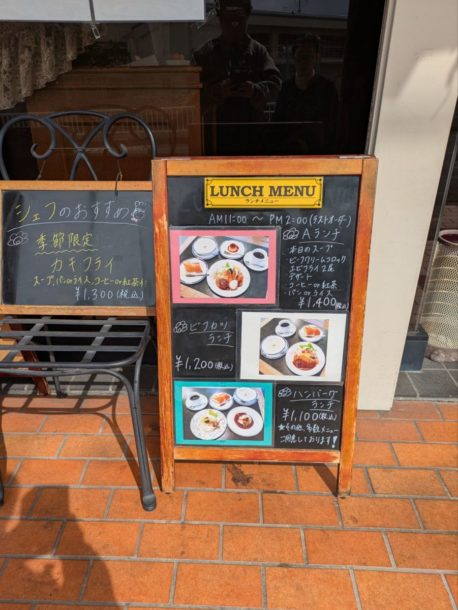 シェフのおすすめ
季節限定
カキフライ
スープ、パンorライス、コーヒーor紅茶付
¥1,300(税込)
LUNCH MENU
ランチメニュー
AM11:00 〜 PM2:00(ラストオーダー)
Aランチ
・本日のスープ
・ビーフクリームコロッケ
エビフライ2尾
・デザート
・コーヒーor紅茶
・パンorライス
¥1,400(税込)
ビフカツ
ランチ
¥1,200(税込)
ハンバーグ
ランチ
¥1,100(税込)
★その他、多数メニュー
ご用意しております!